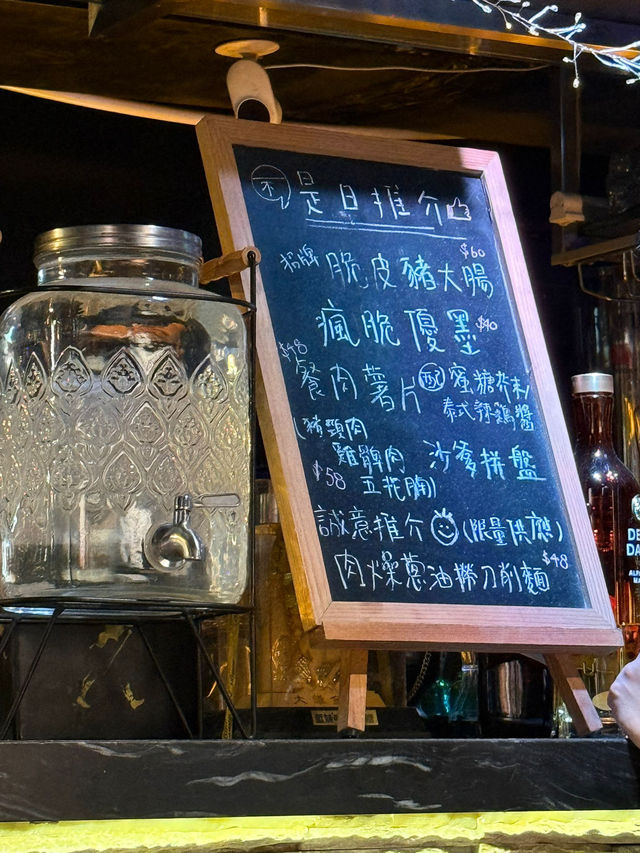 不是日推介
招牌 脆皮豬大腸 $60
瘋脆優墨 $40
$48 餐肉薯片 配 蜜糖芥末/
泰式辣鷄醬
(豬頸肉
雞髀肉
五花腩) 沙爹拼盤
$58
誠意推介 (限量供應)
肉燥蔥油撈刀削麵 $48
DE
DA